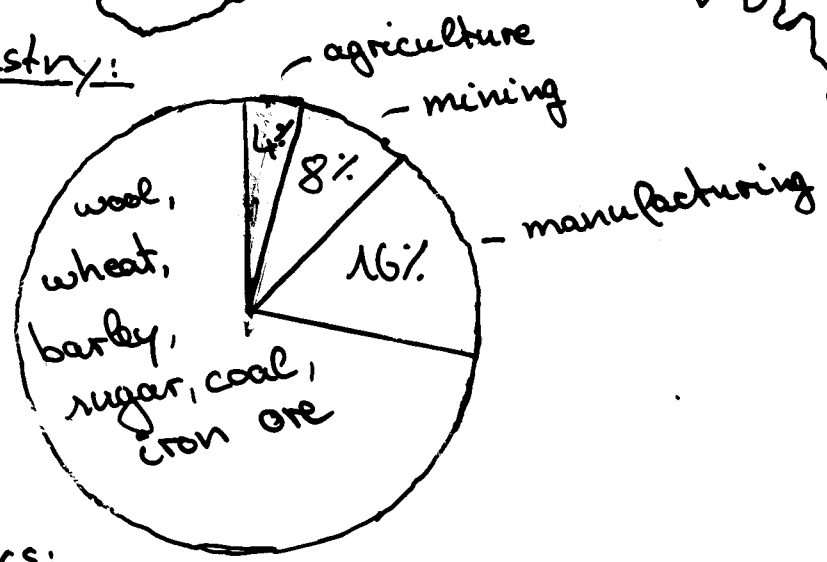 stry:
agriculture
mining
manufacturing
4%
8%
16%
wool,
wheat,
barley,
sugar, coal,
iron ore
cs: